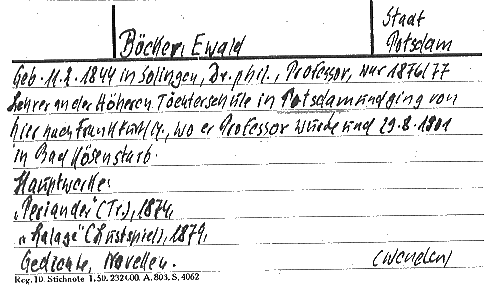 Stadt
Böcker, Ewald Potsdam
Geb. 11.2.1844 in Solingen, Dr. phil., Professor, war 1876/77
Lehrer an der Höheren Töchterschule in Potsdam und ging von
hier nach Frankfurt/M., wo er Professor wurde und 29.8.1901
in Bad Kösen starb.
Hauptwerke:
„Periander" (Tr.), 1874,
„Lalage" (Lustspiel), 1879,
Gedichte, Novellen. (wenden)
Reg. 10. Stichnote 1. 50. 2324.00. A. 803. S. 4062